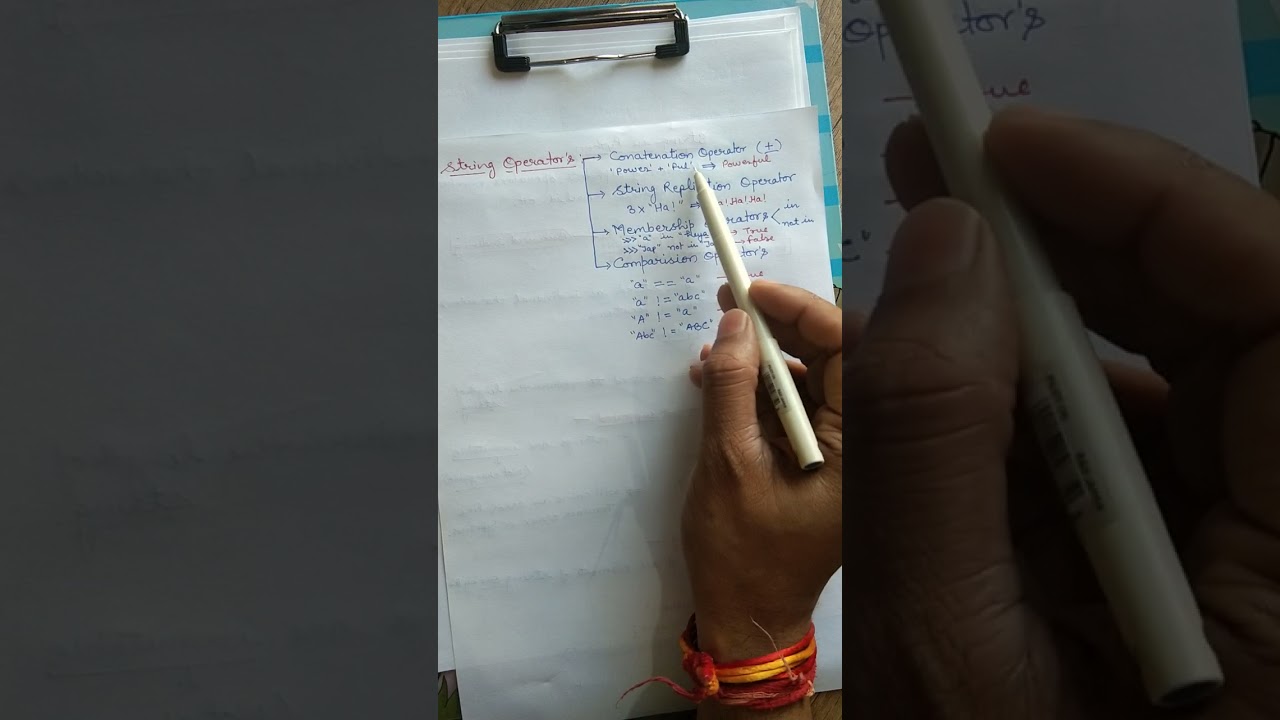 String Operator's
Conatenation Operator (+)
'Power' + 'Ful' ⇒ Powerful
String Replication Operator
3 x "Ha!" ⇒ Ha!Ha!Ha!
Membership Operators
in
not in
>>> "a" in → True
>>> "Jap" not in → False
Comparision Operator's
"a" == "a"
"a" != "abc"
"A" != "a"
"Abc" != "ABC"